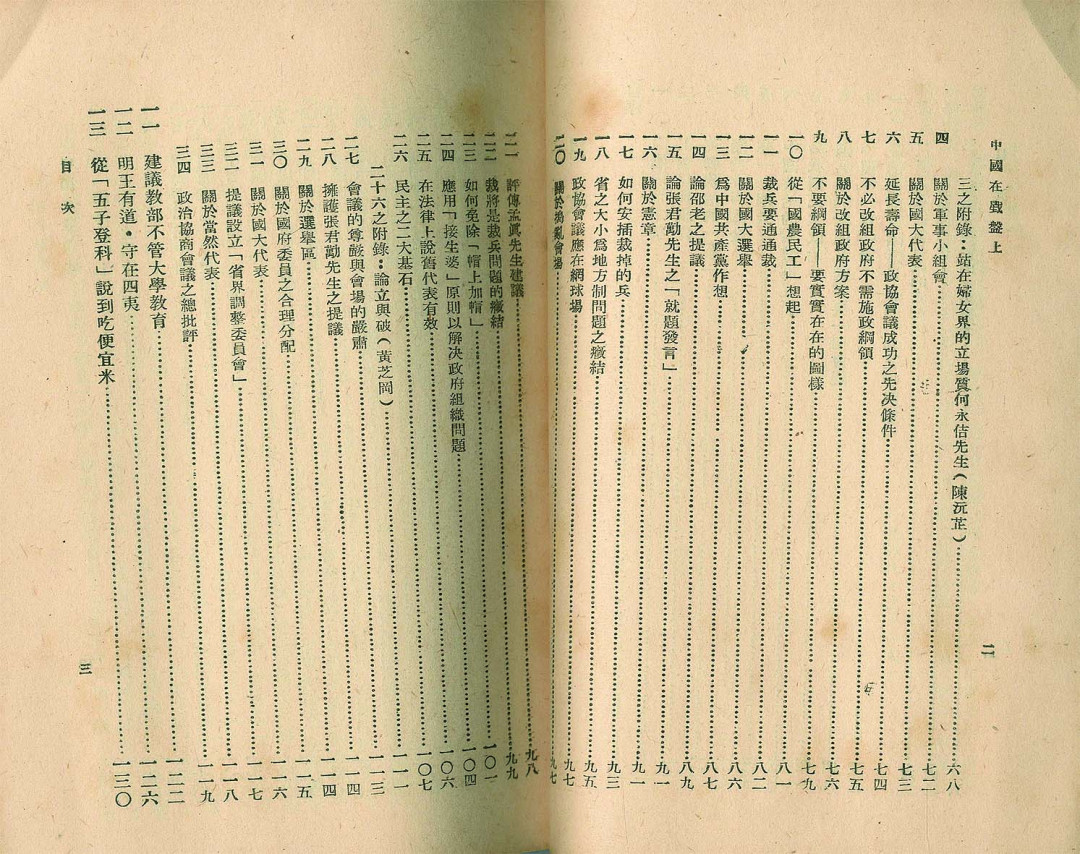 中國在戥盤上 二
三之附錄：站在婦女界的立場質何永佶先生（陳沅芷）……六八
四 關於軍事小組會……七二
五 關於國大代表……七三
六 延長壽命——政協會議成功之先決條件……七四
七 不必改組政府不需施政綱領……七五
八 關於改組政府方案……七六
九 不要綱領——要實實在在的圖樣……七九
一〇 從「國農民工」想起……八一
一一 裁兵要通通裁……八二
一二 關於國大選舉……八六
一三 爲中國共產黨作想……八七
一四 論邵老之提議……八九
一五 論張君勱先生之「就題發言」……九一
一六 關於憲章……九一
一七 如何安插裁掉的兵……九三
一八 省之大小爲地方制問題之癥結……九五
一九 政協會議應在網球場……九七
二〇 關於搗亂會場……九七
二一 評傅孟眞先生建議……九八
二二 裁將是裁兵問題的癥結……九九
二三 如何免除「帽上加帽」……一〇一
二四 應用「接生婆」原則以解決政府組織問題……一〇四
二五 在法律上說舊代表有效……一〇六
二六 民主之二大基石……一〇七
二十六之附錄：論立與破（黃芝岡）……一一一
二七 會議的尊嚴與會場的嚴肅……一一三
二八 擁護張君勱先生之提議……一一四
二九 關於選舉區……一一四
三〇 關於國府委員之合理分配……一一五
三一 關於國大代表……一一六
三二 提議設立「省界調整委員會」……一一七
三三 關於當然代表……一一八
三四 政治協商會議之總批評……一一九
一一 建議敎部不管大學敎育……一二二
一二 明王有道・守在四夷……一二六
一三 從「有五子登科」說到吃便宜米……一三〇
目次 三